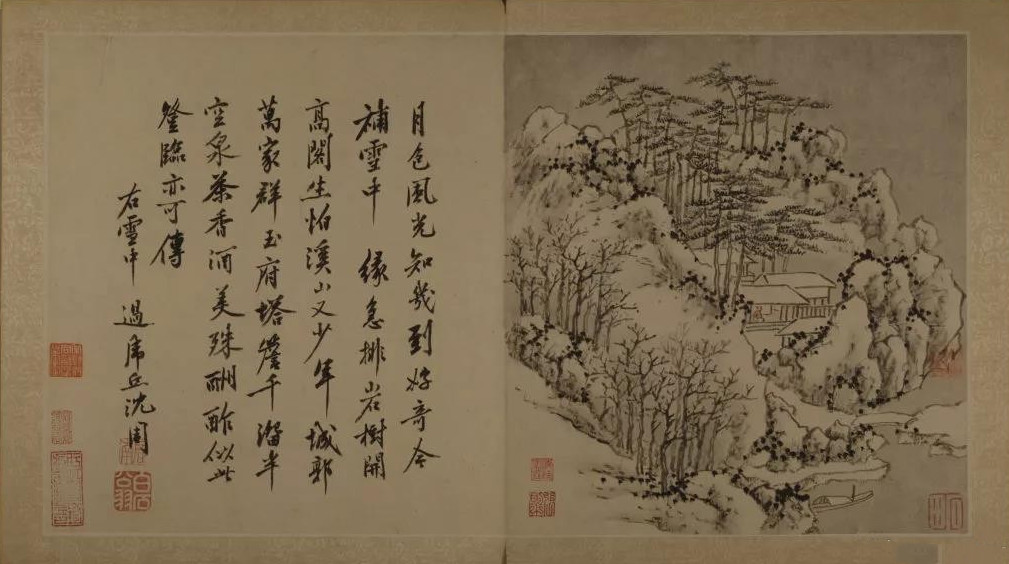 月色風光知幾到好奇今
補雪中緣急排岩樹開
高閣生怕溪山又少年城郭
萬家群玉府塔簷千溜半
空泉茶香酒美殊酬酢似此
登臨亦可傳
右雪中過虎丘沈周
白石翁